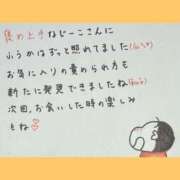 褒め上手なじーこさんに
いろかはずっと照れてました
お気に入りの責められ方も
新たに発見できましたね
次回、お会いした時の楽しみ
もね♡